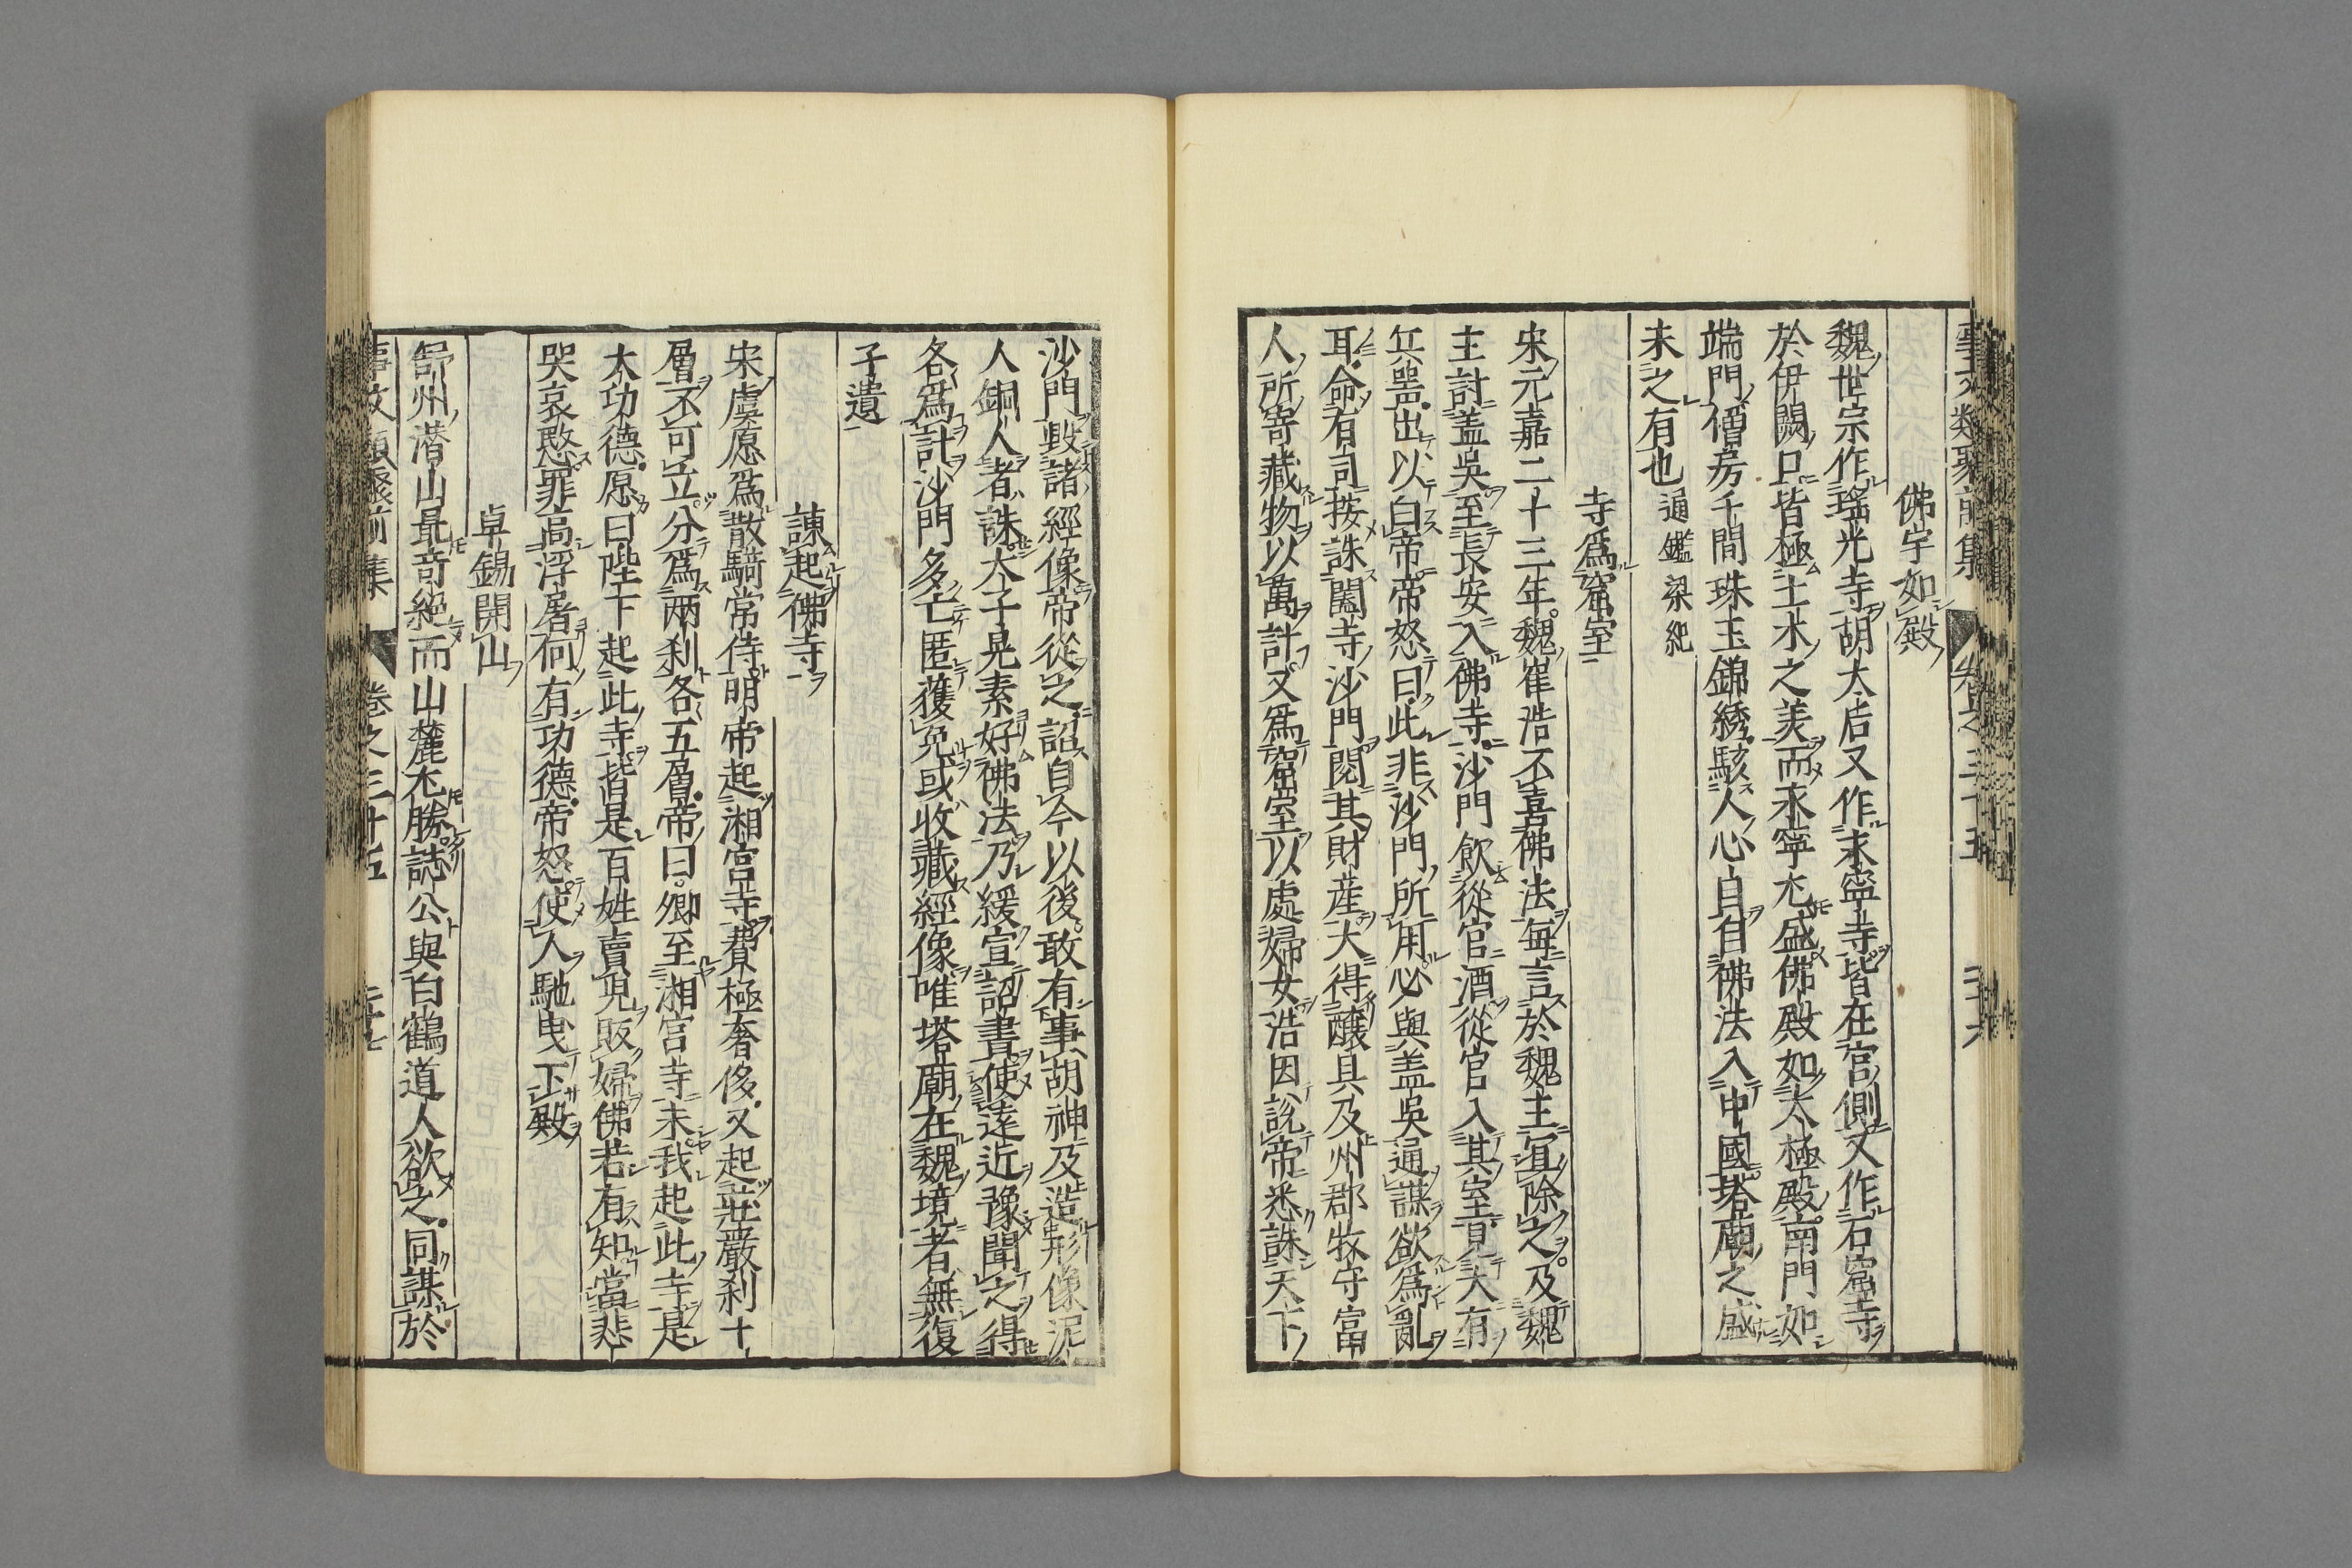 事文類聚前集 卷之三十五 二十六
佛宇如殿
魏世宗作瑤光寺胡太后又作永寧寺皆在宮側又作石窟寺
於伊闕口皆極土木之美而永寧尤盛佛殿如太極殿南門如
端門僧房千間珠玉錦綉駭人心目自佛法入中國塔廟之盛
未之有也 通鑑梁紀
寺爲窟室
宋元嘉二十三年魏崔浩不喜佛法每言於魏主宜除之及魏
主討盖吳至長安入佛寺沙門飲從官酒從官入其室見大有
兵噐出以白帝帝怒曰此非沙門所用必與盖吳通謀欲爲亂
耳命有司按誅闔寺沙門閱其財產大得釀具及州郡牧守富
人所寄藏物以萬計又爲窟室以處婦女浩因說帝悉誅天下
沙門毀諸經像帝從之詔自今以後敢有事胡神及造形像泥
人銅人者誅太子晃素好佛法乃緩宣詔書使遠近豫聞之得
各爲計沙門多亡匿獲免或收藏經像唯塔廟在魏境者無復
孑遺
諫起佛寺
宋虞愿爲散騎常侍明帝起湘宮寺費極奢侈又起莊嚴刹十
層不可立分爲兩刹各五層帝曰卿至湘宮寺未我起此寺是
大功德愿曰陛下起此寺皆是百姓賣兒販婦佛若有知當悲
哭哀愍罪高浮屠何有功德帝怒使人馳曳下殿
卓錫開山
舒州潛山最奇絕而山麓尤勝誌公與白鶴道人欲之同謀於
事文類聚前集 卷之三十五 二十七